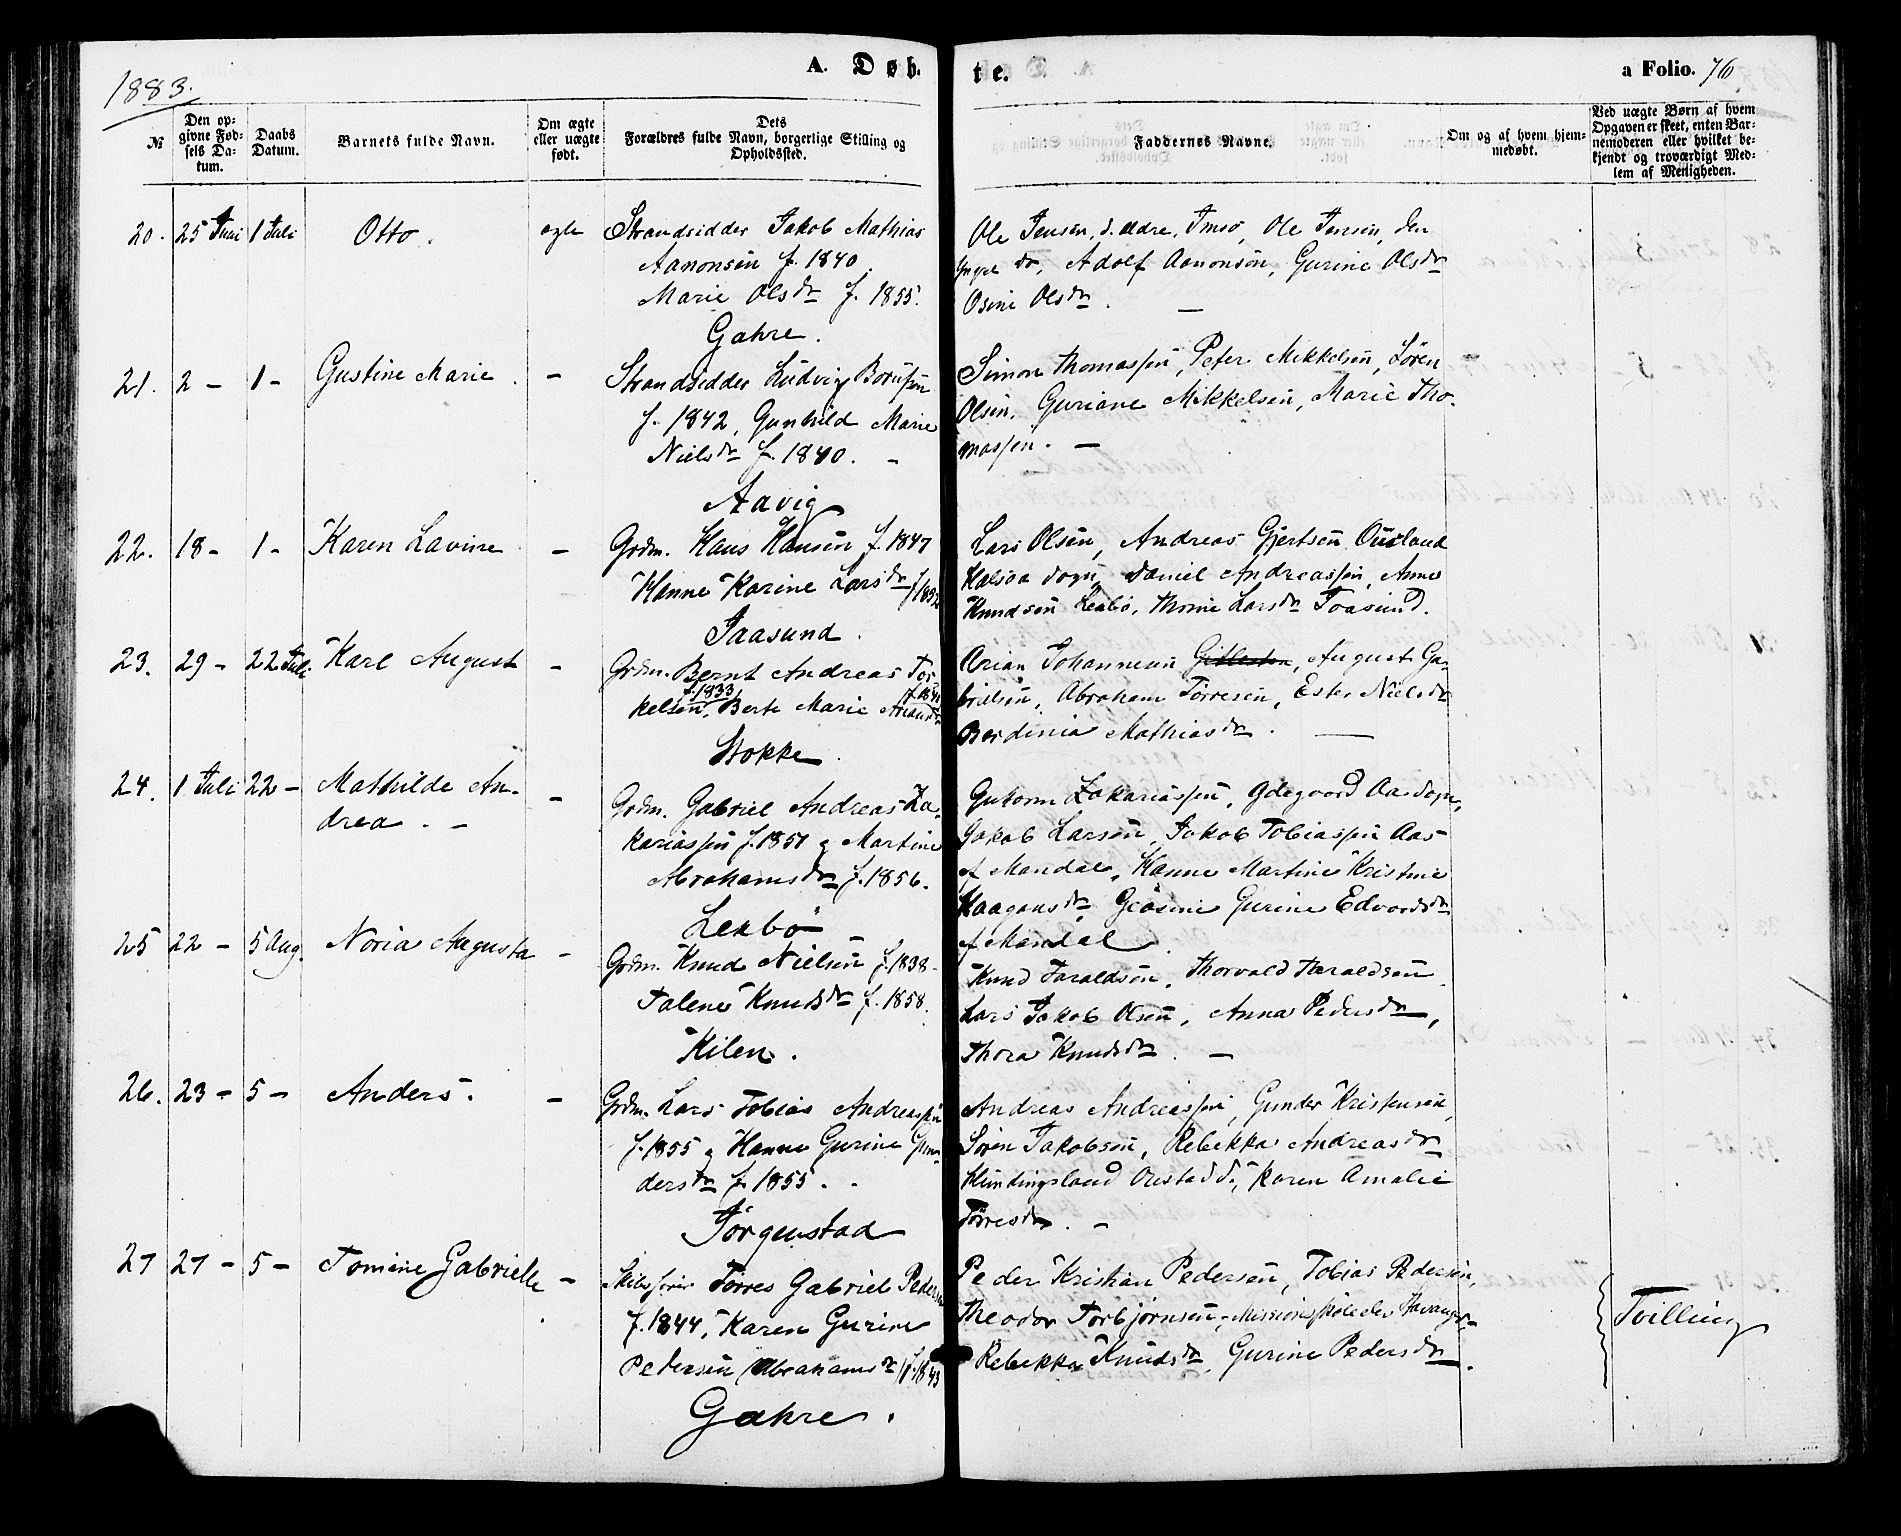 1883.
A. Døb.
te.
a Folio. 76
№
Den op-
givne Fød-
sels Da-
tum.
Daabs
Datum.
Barnets fulde Navn.
Om ægte
eller uægte
født.
Dets
Forældres fulde Navn, borgerlige Stilling og
Opholdssted.
Faddernes Navne.
Om og af hvem hjem-
medøbt.
Ved uægte Børn af hvem
Opgaven er skeet, enten Bar-
nemoderen eller hvilket be-
kjendt og troværdigt Med-
lem af Menigheden.
20. 25 Juni 1 Juli Otto. ægte Strandsidder Jakob Mathias
Aanonsen f. 1840.
Marie Olsdr f. 1855.
Gahre.
Ole Jensen, d. ældre, Imsø, Ole Jensen, den
yngre do, Adolf Aanonsen, Gurine Olsdr
Osine Olsdr. —
21. 2 - 1 - Gustine Marie. - Strandsidder Ludvig
f. 1842, Gunhild Marie
Nielsdr f. 1840. -
Aavig
Simon Thomassen, Peter Mikkelsen, Sören
Olsen, Guriane Mikkelsen, Marie Tho-
massen. —
22. 18 - 1 - Karen Lavine - Grdm. Hans Hansen f. 1847
Hanne Karine Larsdr
Jaasund.
Lars Olsen, Andreas Gjertsen Ousland
Halsaa Sogn, Daniel Andreassen, Anne
Knudsen Lexbö, Thomine Larsdr Jaasund.
23. 29 - 22 Juli Karl August - Grdm. Bernt Andreas Tor-
kelsen, f. 1833, Berte Marie
Stokke.
Arian Johannesen August Ga-
brielsen, Abraham Törresen, Ester Nielsdr
Berdinia Mathiasdr. —
24. 1 Juli 22 - Mathilde An-
drea. - - Grdm. Gabriel Andreas Za-
kariassen f. 1851 g Martine
Abrahamsdr f. 1856.
Lexbö
Gutorm Zakariassen, Ødegaard Aa Sogn,
Jakob Larsen, Jakob Tobiassen Aas
f Mandal, Hanne Martine Kristine
Haagensdr, Gurine Edvardsdr
f Mandal.
25 22 - 5 Aug. Noria Augusta - Grdm. Knud Nielsen f. 1838.
Talene Knudsdr f. 1858.
Kilen.
Knud Taraldsen, Thorvald Taraldsen
Lars Jakob Olsen, Anna Pedersdr,
Thora Knudsdr. —
26. 23 - 5 - Anders. - Grdm. Lars Tobias Andreassen
f. 1855 g Hanne Gurine Gun-
dersdr f. 1855. -
Jörgenstad
Andreas Andreassen, Gunder Kristensen,
Sören Jakobsen, Rebekka Andreasdr
Hundingsland Karen Amalie
Törresdr. -
27 27 - 5 - Tomine Gabrielle - Törres Gabriel Pedersen
f. 1844, Karen Gurine
Pedersen (Abrahamsdr) f. 1843
Gahre.
Peder Kristian Pedersen, Tobias Pedersen,
Theodor Torbjörnsen,
Rebekka Knudsdr, Gurine Pedersdr.
Tvilling